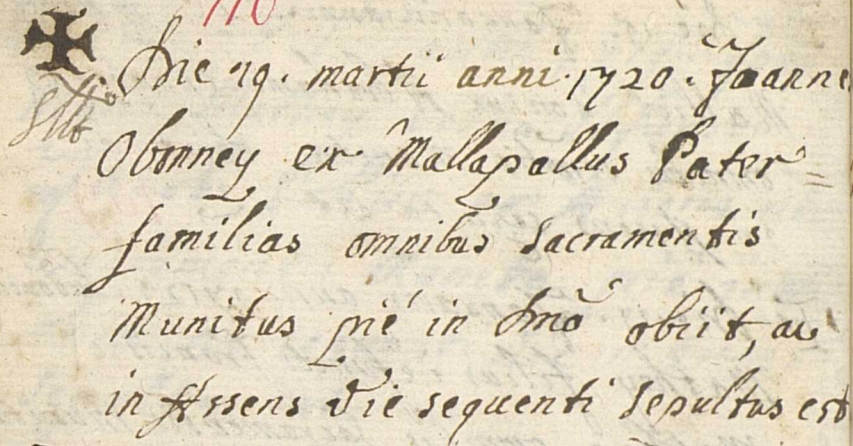 110
Die 19. martii anni 1720. Joanne
Obonney ex Mallapallus Pater=
familias omnibus sacramentis
Munitus pié in Dnō obiit, ac
in Assens die sequenti sepultus est